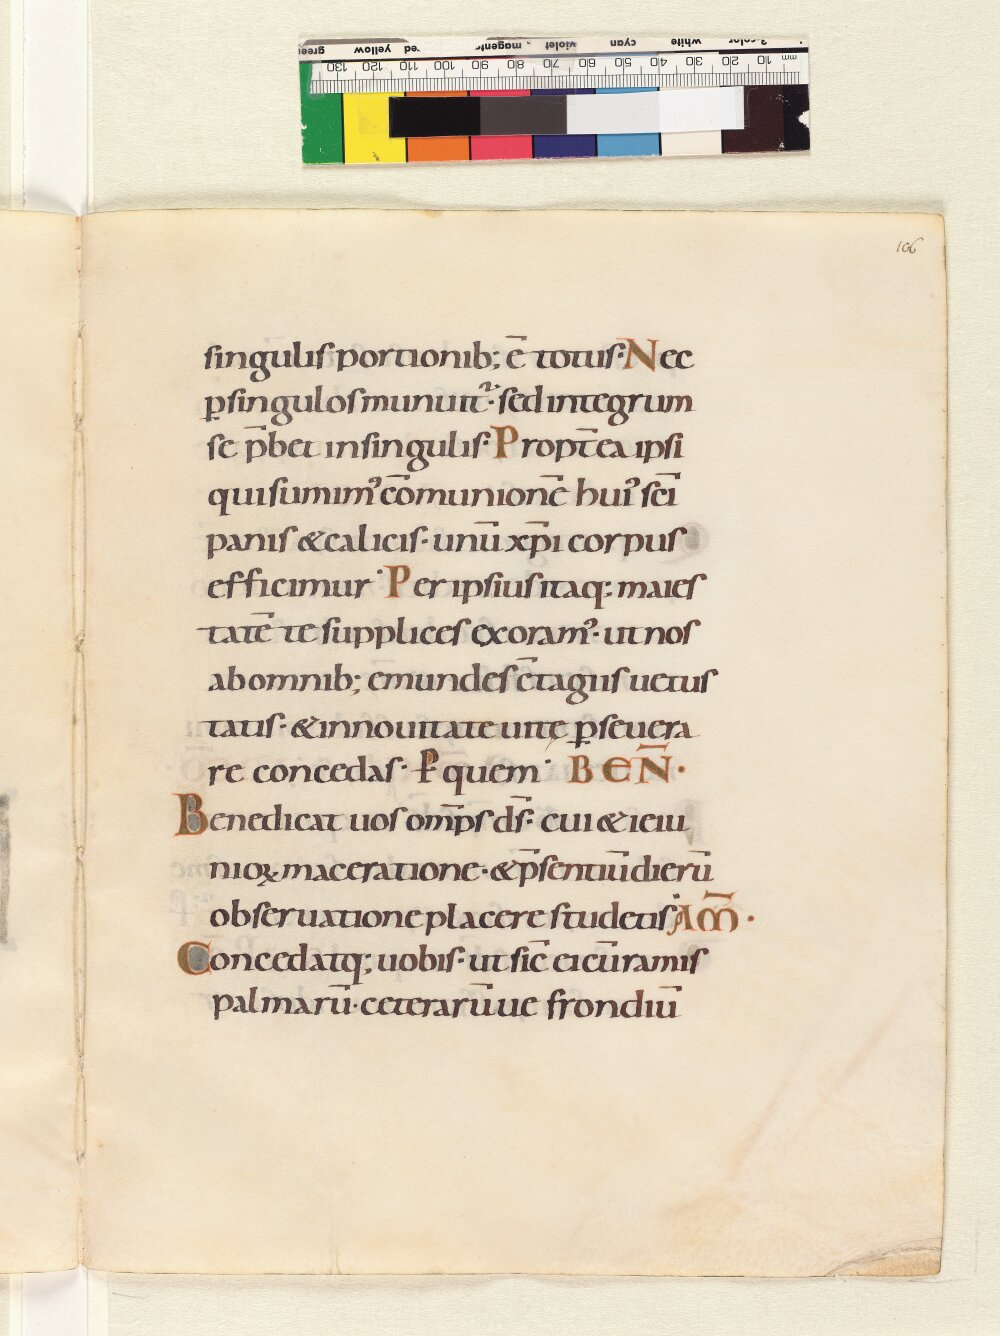 green yellow red magenta violet cyan white 3-color
130 120 110 100 90 80 70 60 50 40 30 20 10 mm
106
singulis portionib; ē totus· Nec
p̱singulos munuit᷑· sed integrum
se p̄bet in singulis· Propt̄ea ipsi
qui sumim᾽ cōmunionē hui᾽ sc̄i
panis & calicis· unū xp̄i corpus
efficimur· Per ipsius itaq: maies
tatē te supplices exoram᾽· ut nos
ab omnib; emundes c̄tagiis uetus
tatis· & in nouitate uitę p̱seuera
re concedas· P̱ quem· BEN̄·
Benedicat uos omp̄s ds̄· cui & ieiu
nioꝝ maceratione· & p̄sentiū dierū
obseruatione placere studetis· AM̄·
Concedatq; uobis· ut sic̄ ei cū ramis
palmarū· ceterarū ue frondiū